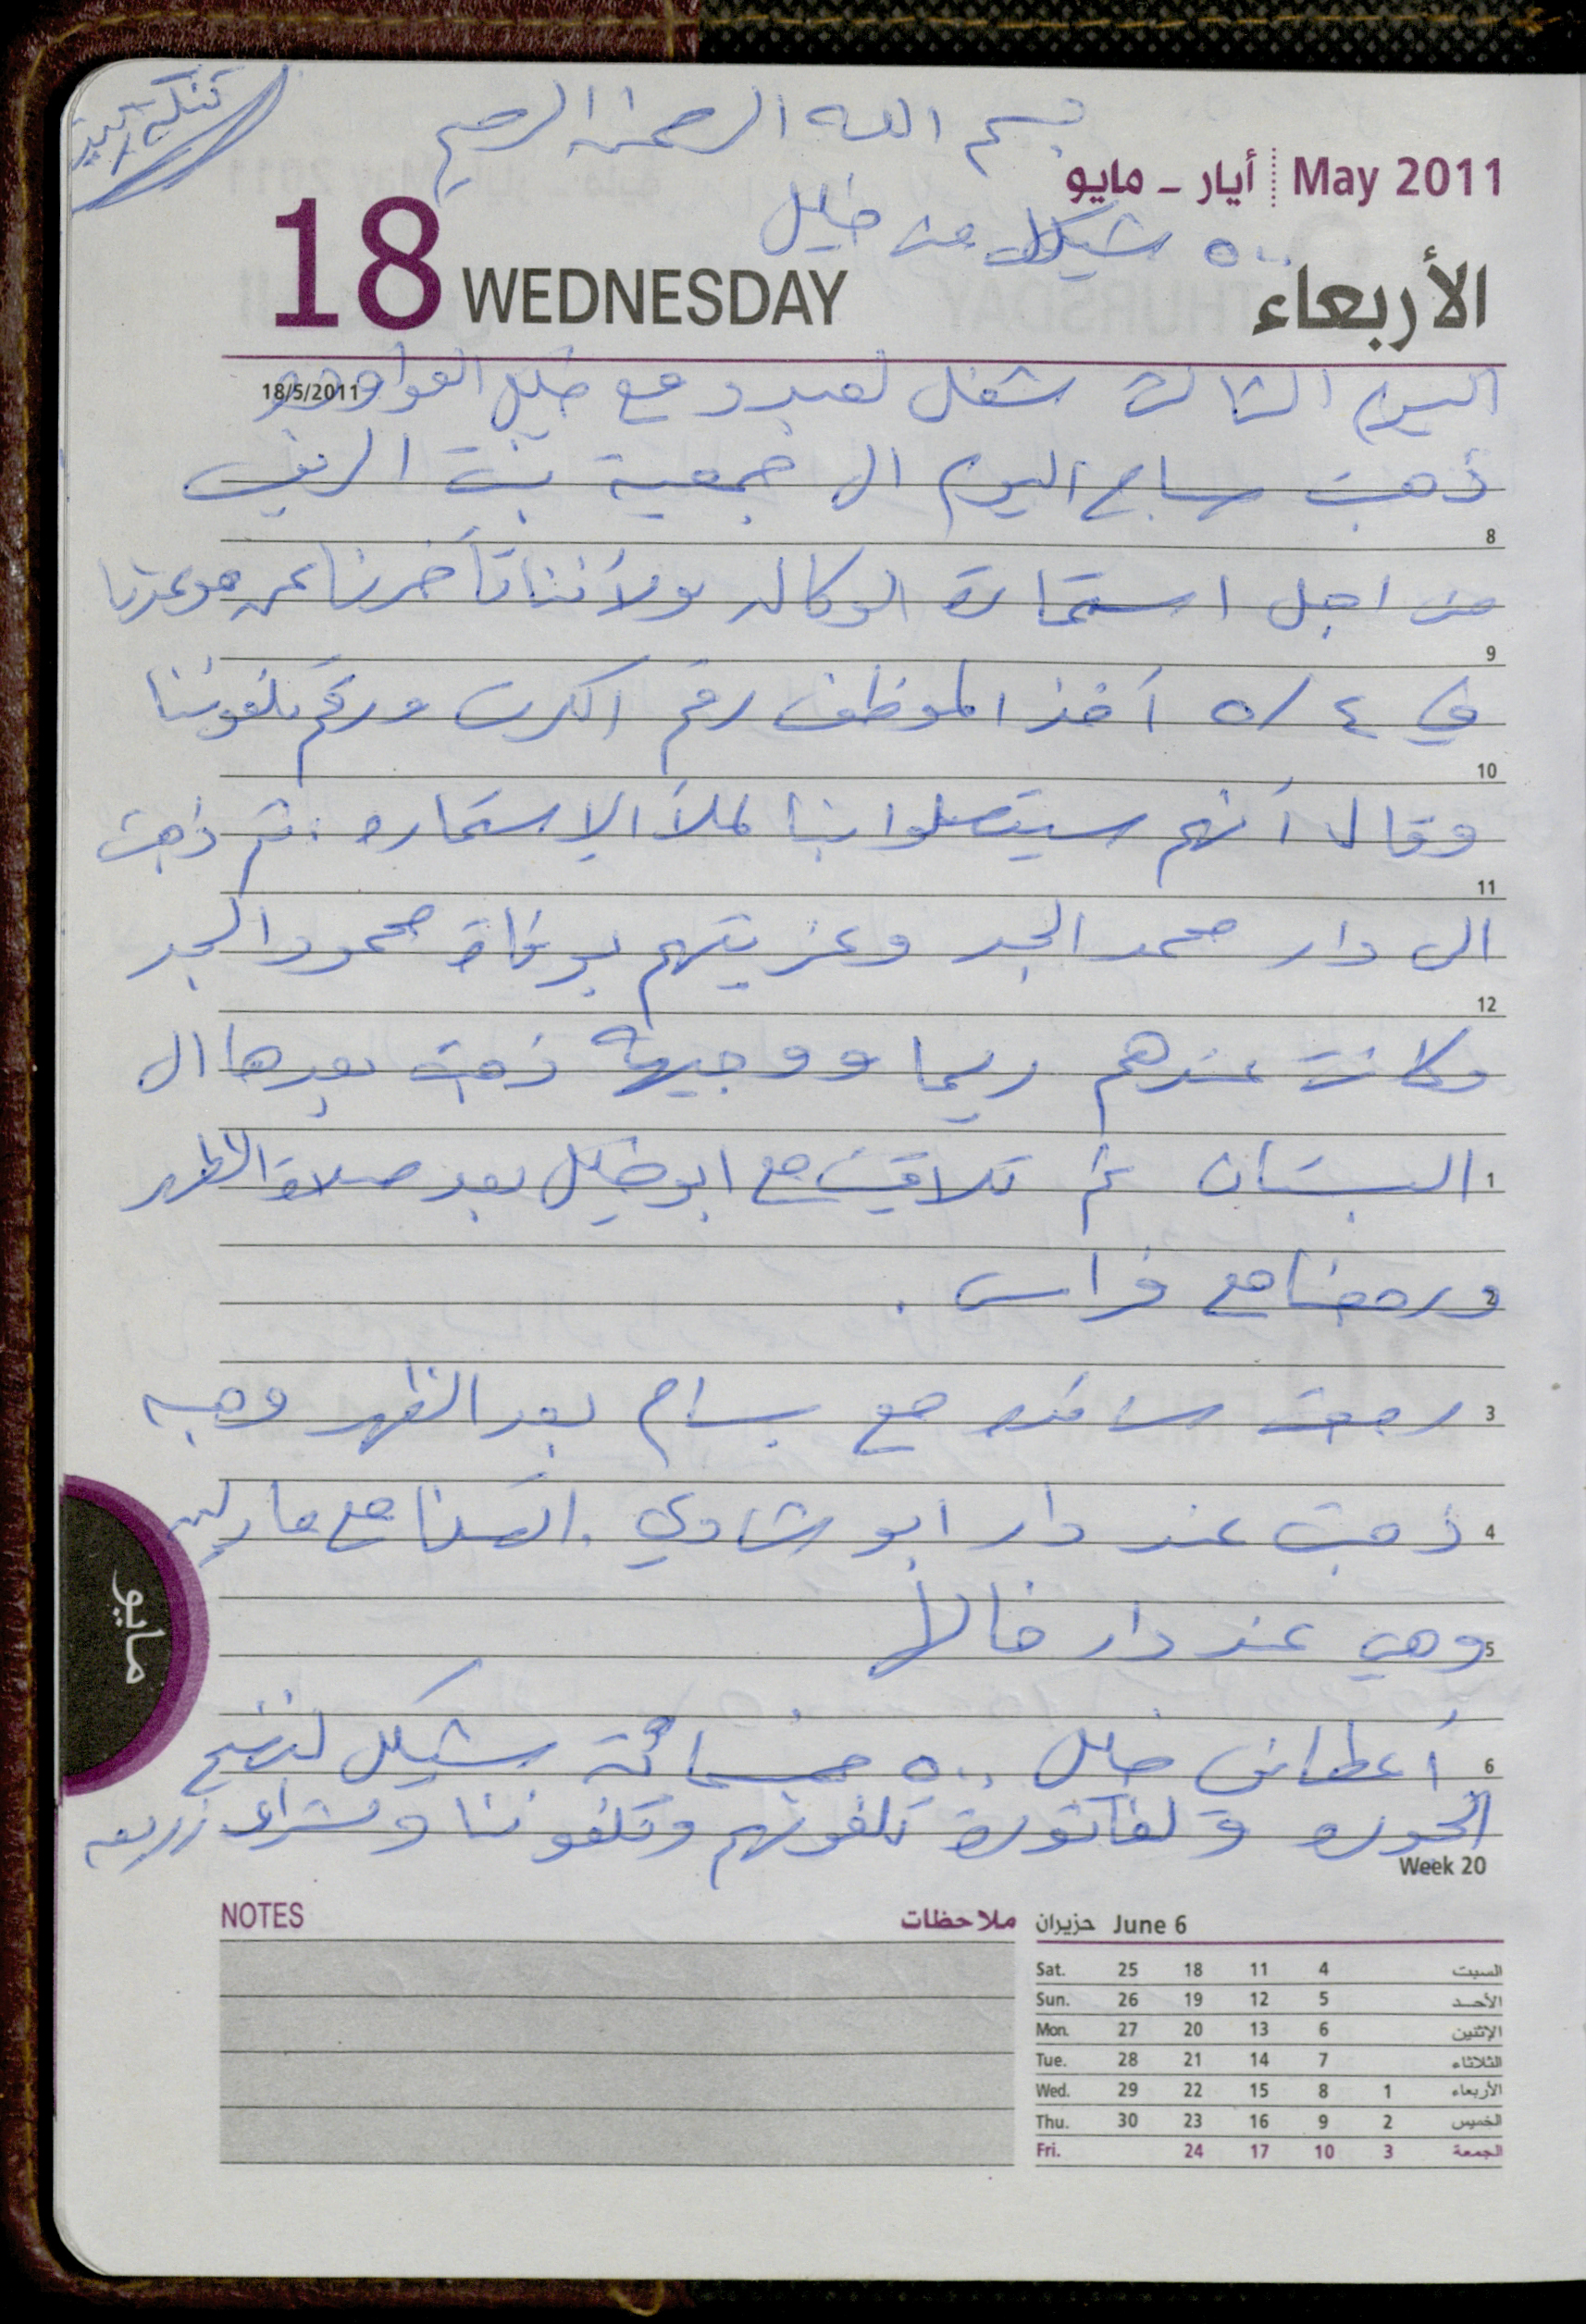 بسم الله الرحمن الرحيم
أيار - مايو May 2011
٥٠٠ شيكل من خليل
18 WEDNESDAY الأربعاء
18/5/2011
اليوم الثالث شغل لعبد مع خليل
ذهبت صباح اليوم الى جمعية بنت الريف
8
من اجل استمارة الوكاله ولأننا تأخرنا عن موعدنا
9
في ٤/٥ أخذ الموظف رقم الكرت ورقم تلفوننا
10
وقال أنهم سيتصلوا بنا لملأ الإستماره . ثم ذهبت
11
الى دار محمد الجد وعزيتهم بوفاة محمود الجد
12
وكانت عندهم ريما ووجيهة ذهبت بعدها الى
1 البستان ثم تلاقيت مع ابو خليل بعد صلاة الظهر
2 ورجعنا مع فراس .
3 رجعت مع بسام بعد الظهر وهبه
4 ذهبت عند دار ابو شادي . اتصلنا مع مارلين
5 وهي عند دار خالها
6 أعطاني خليل ٥٠٠ خمسمائة شيكل
الحوره و لفاتورة تلفونهم وتلفوننا وشراء زريعه
Week 20
NOTES ملاحظات
حزيران June 6
Sat. 25 18 11 4 السبت
Sun. 26 19 12 5 الأحد
Mon. 27 20 13 6 الإثنين
Tue. 28 21 14 7 الثلاثاء
Wed. 29 22 15 8 1 الأربعاء
Thu. 30 23 16 9 2 الخميس
Fri. 24 17 10 3 الجمعة
مايو